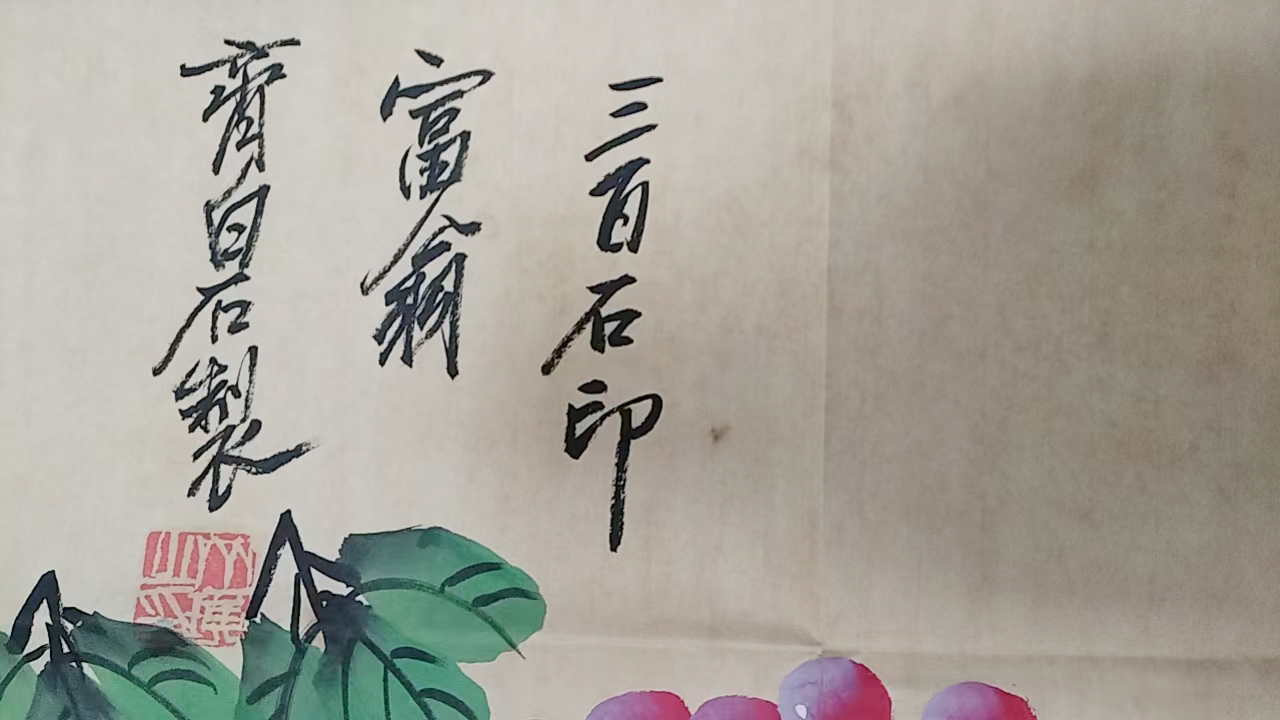 三百石印
富翁
齊白石製